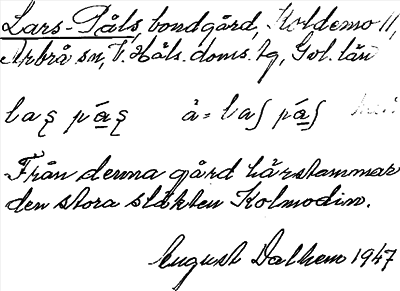 Lars-Påls, bondgård, Koldemo 11,
Arbrå sn, V. Häls. doms. tg, Gvl. län
Från denna gård härstammar
den stora släkten Kolmodin.
August Dalhem 1947